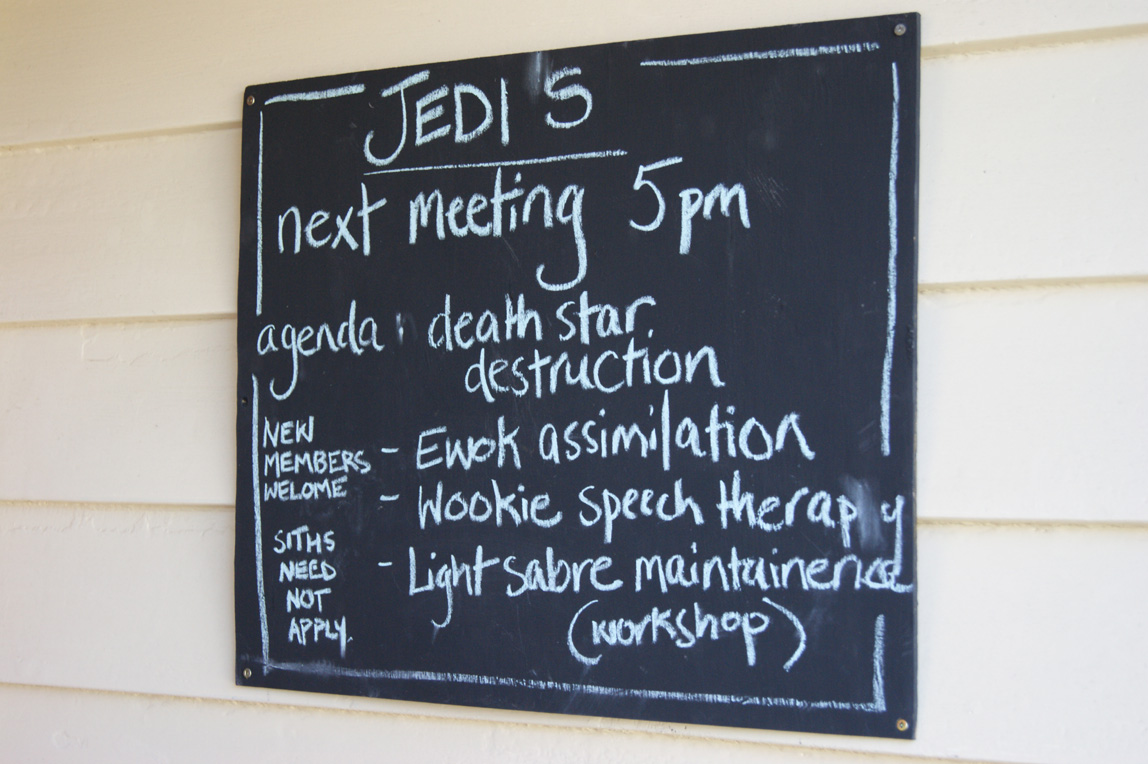 JEDI S
next meeting 5pm
agenda: death star
destruction
- Ewok assimilation
- Wookie speech therapy
- Light sabre maintainence
(workshop)
NEW
MEMBERS
WELOME
SITHS
NEED
NOT
APPLY.